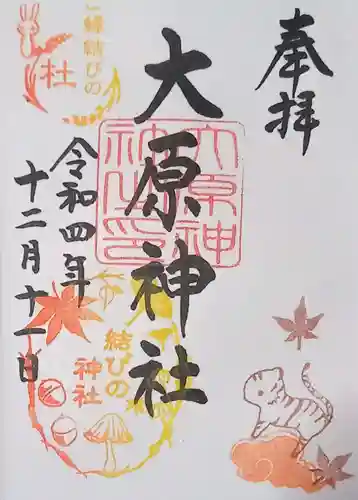 奉拝
大原神社
大原神
社之印
令和四年
十二月十一日
縁結びの
杜
結びの
神社